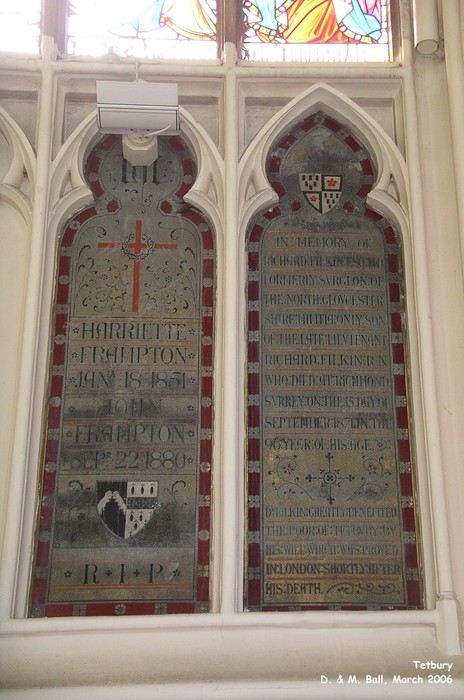 IHS
HARRIETTE
FRAMPTON
JANY 18 1851
JOHN
FRAMPTON
SEPT 22 1880
R · I · P
IN MEMORY OF
RICHARD FILKIN ESQ
FORMERLY SVRGEON OF
THE NORTH GLOVCESTER
SHIRE MILITIA ONLY SON
OF THE LATE LIEVTENANT
RICHARD FILKIN R.N
WHO DIED AT RICHMOND
SVRREY ON THE 15 DAY OF
SEPTEMBER IN THE
96 YEAR OF HIS AGE
DR FILKIN GREATLY BENEFITED
THE POOR OF TETBVRY BY
HIS WILL WHICH WAS PROVED
IN LONDON SHORTLY AFTER
HIS DEATH
Tetbury
D. & M. Ball, March 2006